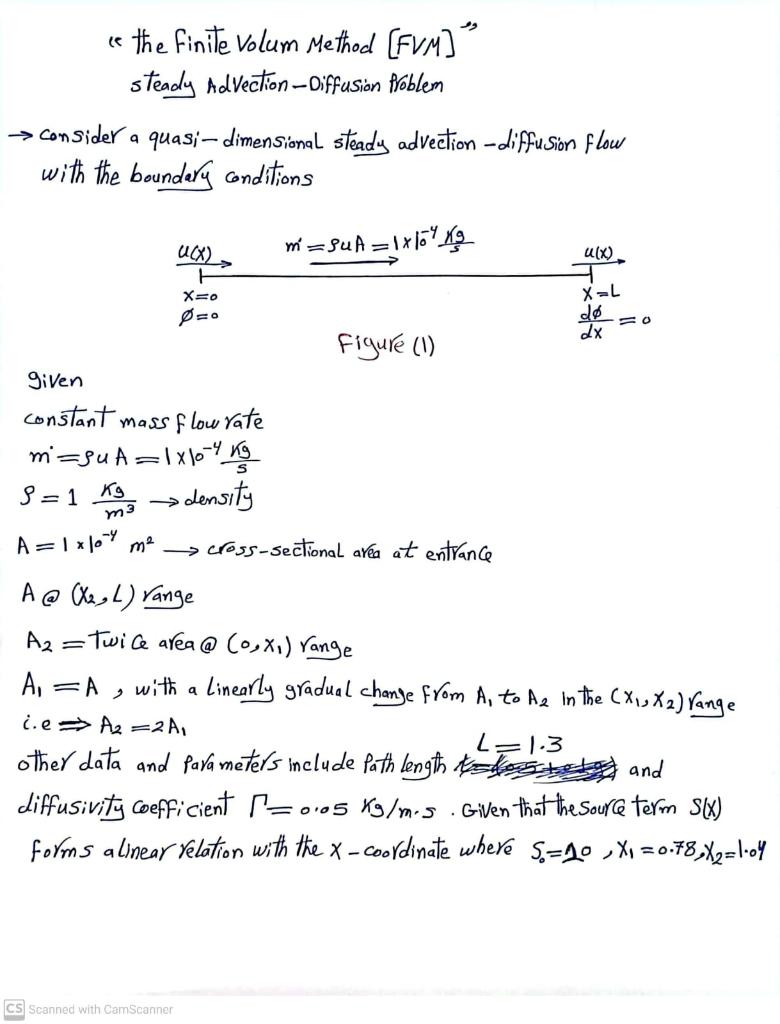 “ the Finite Volum Method [FVM] ”
steady Advection - Diffusion Problem
→ Consider a quasi-dimensional steady advection -diffusion flow
with the boundary conditions
u(x) ṁ = ρuA = 1x10⁻⁴ Kg/s u(x)
x=0 X=L
Ø=0 dø/dx = 0
Figure (1)
given
constant mass flow rate
ṁ = ρuA = 1x10⁻⁴ Kg/s
ρ = 1 Kg/m³ → density
A = 1x10⁻⁴ m² → cross-sectional area at entrance
A @ (X₂, L) range
A₂ = Twice area @ (0, X₁) range
A₁ = A , with a linearly gradual change from A₁ to A₂ In the (X₁, X₂) range
i.e ⇒ A₂ = 2A₁
L = 1.3
other data and parameters include Path length and
diffusivity coefficient Γ = 0.05 Kg/m.s . Given that the source term S(X)
forms a linear relation with the x-coordinate where S₀=20 , X₁ = 0.78, X₂=1.04
CS Scanned with CamScanner